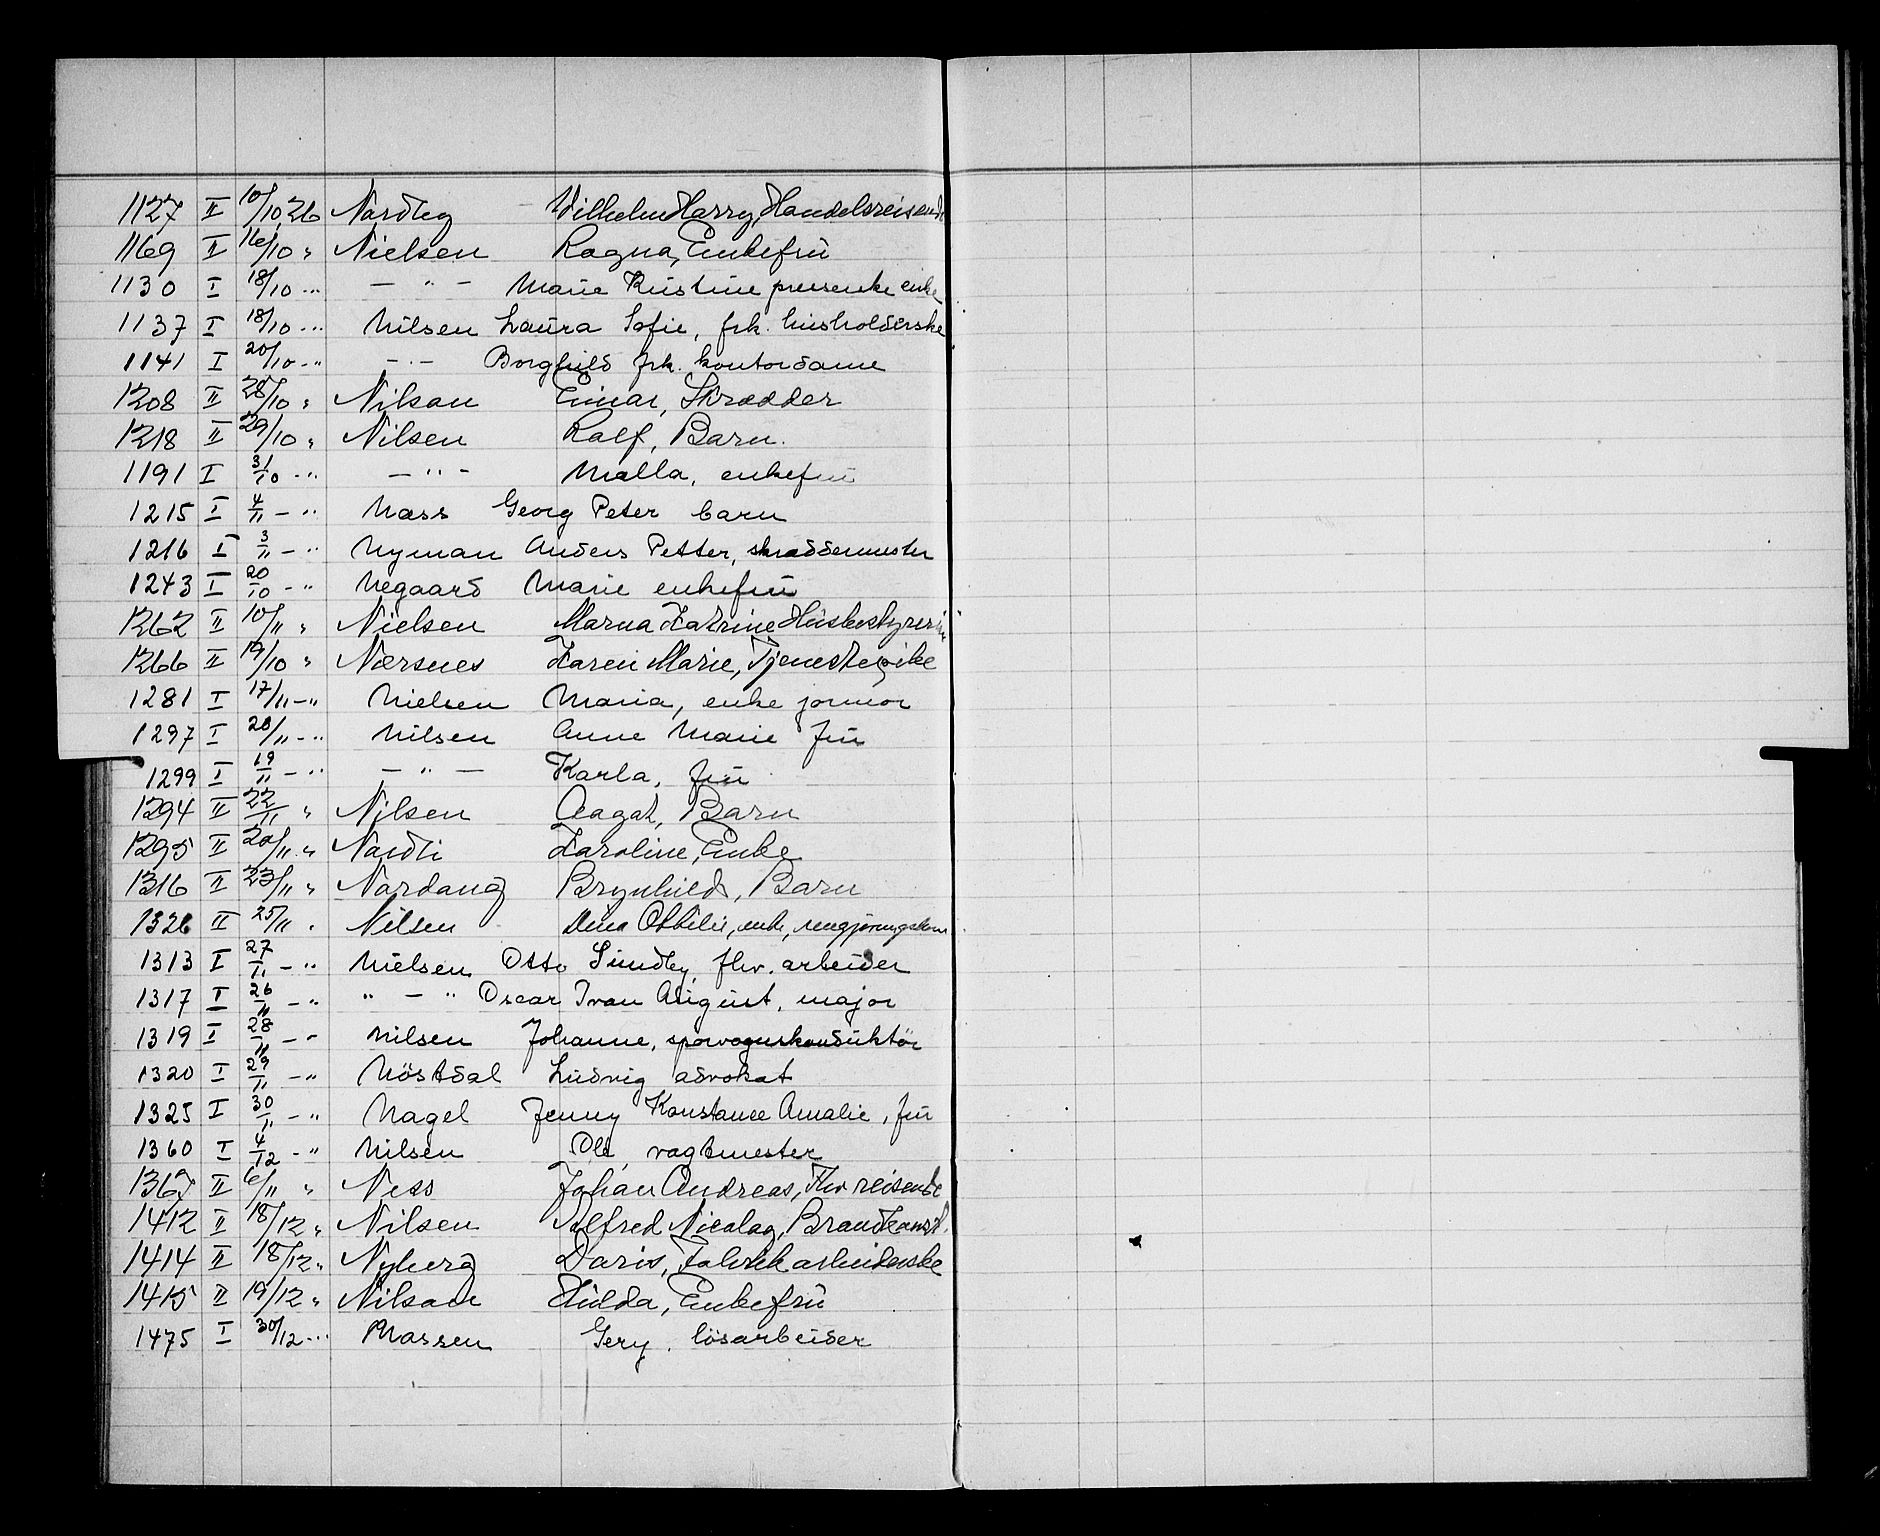 1127 II 10/10 26 Nordby Vilhelm Harry, Handelsreisende
1169 II 16/10 " Nielsen Ragna, Enkefrü
1130 I 18/10 - " — " — Marie Kristine enke
1137 I 18/10 - " Nilsen Laura Sofie, frk. husholderske
1141 I 20/10 - " — " — Borghild frk. kontordame
1208 II 28/10 " Nilsen Einar, Skrædder
1218 II 29/10 " Nilsen Rolf, Barn.
1191 I 31/10 - " — " — Malla, enkefrü
1215 I 4/11 - " Næss Georg Peter barn
1216 I 3/11 - " Nyman Anders Petter, skræddermester
1243 I 20/10 - " Negaard Marie enkefrü
1262 II 10/11 " Nielsen Marna Katrine Husbestyrerin
1266 II 19/10 " Nærsnes Karen Marie, Tjenestepike
1281 I 17/11 - " Nielsen Maria, enke jormor
1297 I 20/11 - " Nilsen Anne Marie frü
1299 I 19/11 - " — " — Karla, frü
1294 II 22/11 " Nilsen Aagot, Barn
1295 II 20/11 " Nordli Karoline, Enke
1316 II 23/11 " Nordang Brynhild, Barn
1326 II 25/11 " Nilsen Dina Othilie, enke, rengjøringskone
1313 I 27/11 - " Nielsen Otto Sundby, fhv. arbeider
1317 I 26/11 - " " — " Oscar Ivan August, major
1319 I 28/11 - " Nilsen Johanne, sporvognskonduktör
1320 I 29/11 - " Nöstdal Ludvig advokat
1325 I 30/11 - " Nagel Jenny Konstance Amalie, frü
1360 I 4/12 - " Nilsen Ole, vagtmester
1367 II 6/11 " Ness Johan Andreas, Fhv reisende
1412 II 18/12 " Nilsen Alfred Nicolay, Brandkonst.
1414 II 18/12 " Nyberg Doris, Fabrikarbeiderske
1415 II 19/12 " Nilsen Hulda, Enkefrü
1475 I 30/12 - " Nassen Gery, lösarbeider